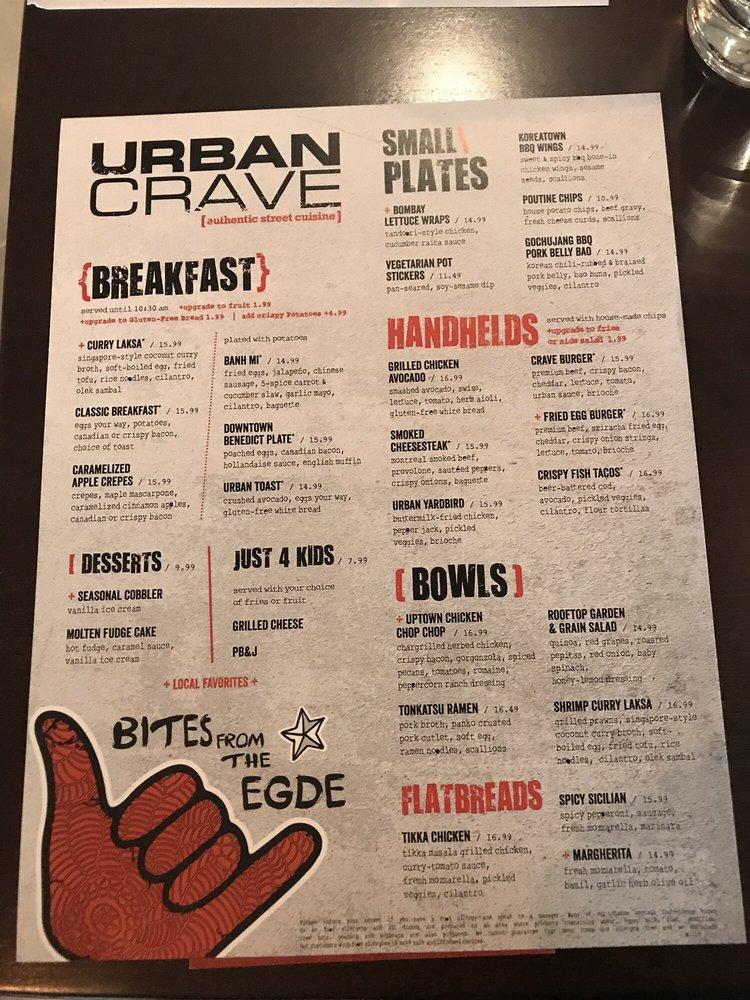 URBAN
CRAVE
[authentic street cuisine]
{BREAKFAST}
served until 10:30 am +upgrade to fruit 1.99
+upgrade to Gluten-Free Bread 1.99 | add crispy Potatoes +4.99
+ CURRY LAKSA* / 15.99
singapore-style coconut curry
broth, soft-boiled egg, fried
tofu, rice noodles, cilantro,
olek sambal
CLASSIC BREAKFAST* / 15.99
eggs your way, potatoes,
canadian or crispy bacon,
choice of toast
CARAMELIZED
APPLE CREPES / 15.99
crepes, maple mascarpone,
caramelized cinnamon apples,
canadian or crispy bacon
plated with potatoes
BANH MI* / 14.99
fried eggs, jalapeño, chinese
sausage, 5-spice carrot &
cucumber slaw, garlic mayo,
cilantro, baguette
DOWNTOWN
BENEDICT PLATE* / 15.99
poached eggs, canadian bacon,
hollandaise sauce, english muffin
URBAN TOAST* / 14.99
crushed avocado, eggs your way,
gluten-free white bread
[ DESSERTS / 9.99
+ SEASONAL COBBLER
vanilla ice cream
MOLTEN FUDGE CAKE
hot fudge, caramel sauce,
vanilla ice cream
JUST 4 KIDS / 7.99
served with your choice
of fries or fruit
GRILLED CHEESE
PB&J
+ LOCAL FAVORITES +
BITES FROM
THE
EGDE
SMALL\
PLATES
+ BOMBAY
LETTUCE WRAPS / 14.99
tandoori-style chicken,
cucumber raita sauce
VEGETARIAN POT
STICKERS / 11.49
pan-seared, soy-sesame dip
KOREATOWN
BBQ WINGS / 14.99
sweet & spicy bbq bone-in
chicken wings, sesame
seeds, scallions
POUTINE CHIPS / 10.99
house potato chips, beef gravy,
fresh cheese curds, scallions
GOCHUJANG BBQ
PORK BELLY BAO / 14.99
korean chili-rubbed & braised
pork belly, bao buns, pickled
veggies, cilantro
HANDHELDS
served with house-made chips
+upgrade to fries
or side salad 1.99
GRILLED CHICKEN
AVOCADO / 16.99
smashed avocado, swiss,
lettuce, tomato, herb aioli,
gluten-free white bread
SMOKED
CHEESESTEAK* / 15.99
montreal smoked beef,
provolone, sautéed peppers,
crispy onions, baguette
URBAN YARDBIRD / 15.99
buttermilk-fried chicken,
pepper jack, pickled
veggies, brioche
CRAVE BURGER* / 15.99
premium beef, crispy bacon,
cheddar, lettuce, tomato,
urban sauce, brioche
+ FRIED EGG BURGER* / 16.99
premium beef, sriracha fried egg,
cheddar, crispy onion strings,
lettuce, tomato, brioche
CRISPY FISH TACOS* / 16.99
beer-battered cod,
avocado, pickled veggies,
cilantro, flour tortillas
[ BOWLS ]
+ UPTOWN CHICKEN
CHOP CHOP / 16.99
chargrilled herbed chicken,
crispy bacon, gorgonzola, spiced
pecans, tomatoes, romaine,
peppercorn ranch dressing
TONKATSU RAMEN / 16.49
pork broth, panko crusted
pork cutlet, soft egg,
ramen noodles, scallions
ROOFTOP GARDEN
& GRAIN SALAD / 14.99
quinoa, red grapes, roasted
pepitas, red onion, baby
spinach,
honey-lemon dressing
SHRIMP CURRY LAKSA / 16.99
grilled prawns, singapore-style
coconut curry broth, soft-
boiled egg, fried tofu, rice
noodles, cilantro, olek sambal
FLATBREADS
TIKKA CHICKEN / 16.99
tikka masala grilled chicken,
curry-tomato sauce,
fresh mozzarella, pickled
veggies, cilantro
SPICY SICILIAN / 15.99
spicy pepperoni, sausage,
fresh mozzarella, marinara
+ MARGHERITA / 14.99
fresh mozzarella, tomato,
basil, garlic herb olive oil
Please inform your server if you have a food allergy and speak to a manager.